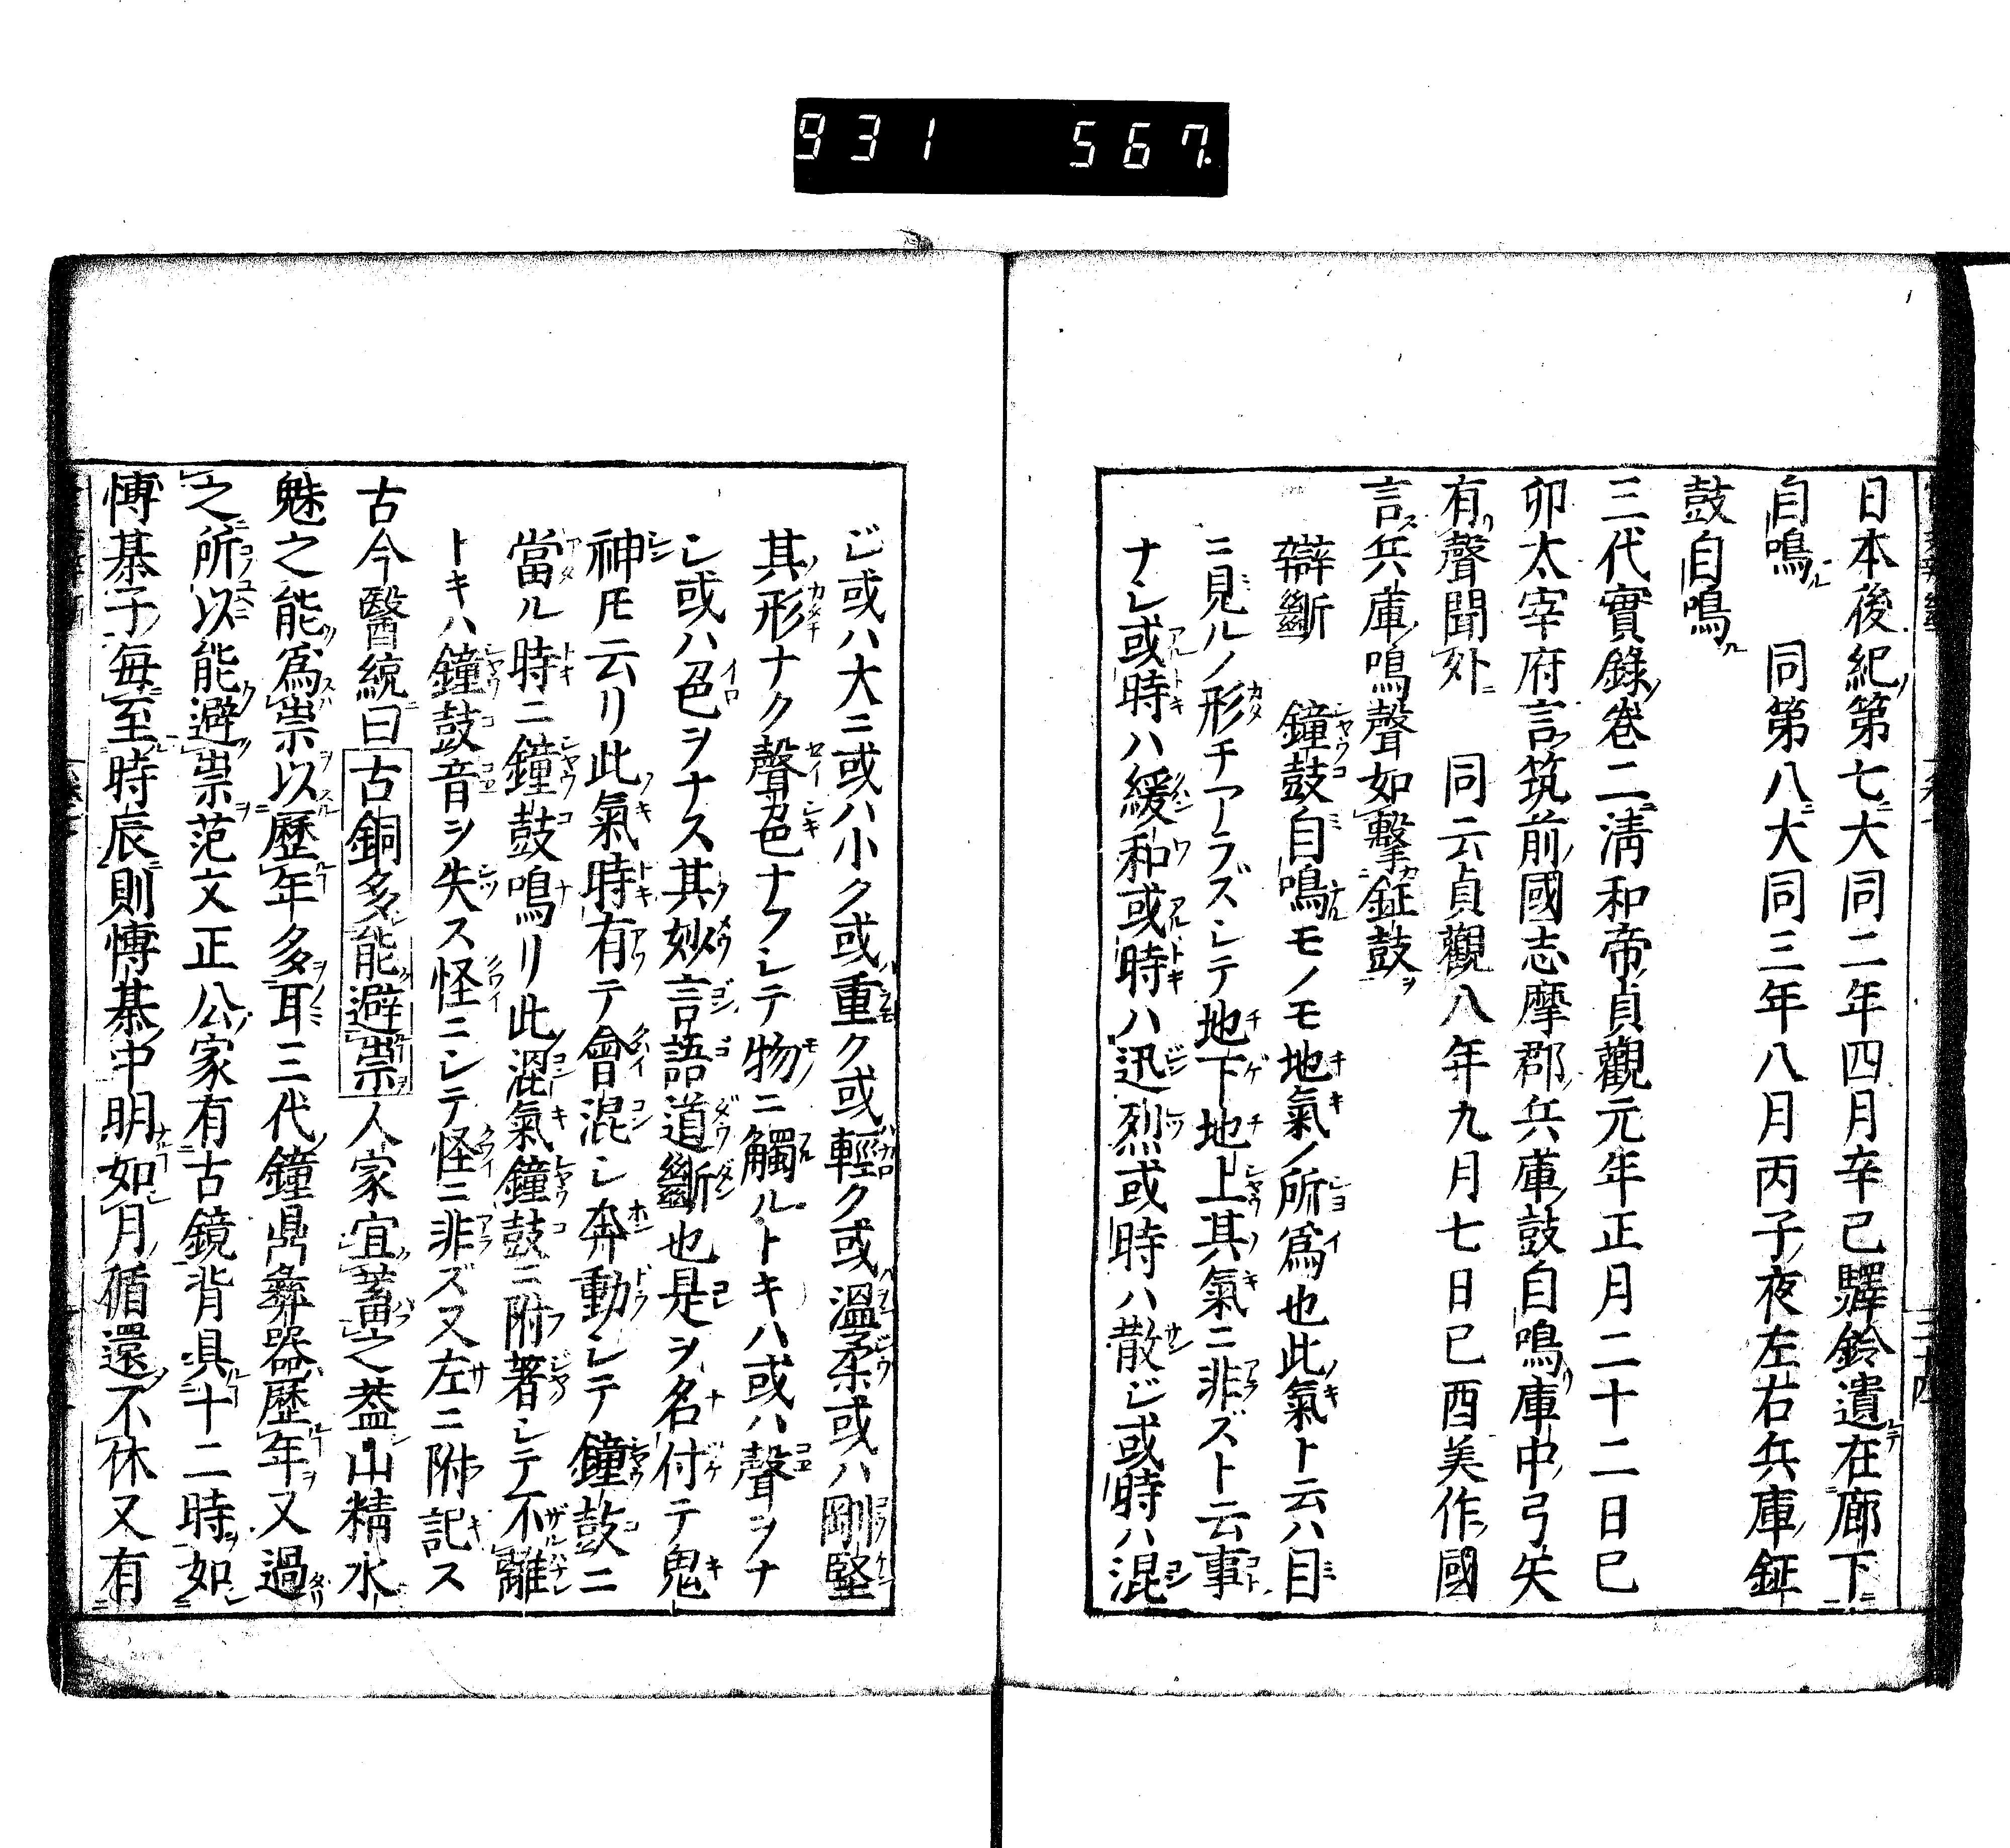 931 567
日本後紀第七大同二年四月辛巳驛鈴遺在廊下
自鳴 同第八大同三年八月丙子夜左右兵庫鉦
鼓自鳴
三代實錄卷二淸和帝貞觀元年正月二十二日巳
卯太宰府言筑前國志摩郡兵庫鼓自鳴庫中弓矢
有聲聞外 同云貞觀八年九月七日巳酉美作國
言兵庫鳴聲如擊鉦鼓
辯斷 鐘鼓自鳴モノモ地氣ノ所爲也此氣ト云ハ目
ニ見ルノ形チアラズシテ地下地上其氣ニ非ズト云事
ナシ或時ハ緩和或時ハ迅烈或時ハ散ジ或時ハ混
ジ或ハ大ニ或ハ小ク或重ク或輕ク或溫柔或ハ剛堅
其形ナク聲色ナフシテ物ニ觸ルトキハ或ハ聲ヲナ
シ或ハ色ヲナス其妙言語道斷也是ヲ名付テ鬼
神トモ云リ此氣時有テ會混シ奔動シテ鐘鼓ニ
當ル時ニ鐘鼓鳴リ此混氣鐘鼓ニ附著シテ不離
トキハ鐘鼓音ヲ失ス怪ニシテ怪ニ非ズ又左ニ附記ス
古今醫統曰古銅多能避祟人家宜畜之蓋山精水
魅之能爲祟以歷年多耳三代鐘鼎彝器歷年又過
之所以能避祟范文正公家有古鏡背具十二時如
愽棊子每至時辰則愽棊中明如月循還不休又有